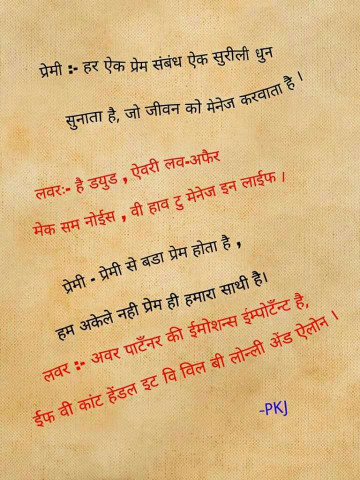 प्रेमी :- हर ऐक प्रेम संबंध ऐक सुरीली धुन
सुनाता है, जो जीवन को मेनेज करवाता है ।
लवरः- है डयुड , ऐवरी लव-अफैर
मेक सम नोईस , वी हाव टु मेनेज इन लाईफ ।
प्रेमी - प्रेमी से बडा प्रेम होता है ,
हम अकेले नही प्रेम ही हमारा साथी है।
लवर :- अवर पार्टँनर की ईमोशन्स इंम्पोर्टँन्ट है,
ईफ वी कांट हेंडल इट वि विल बी लोन्ली अेंड ऐलोन ।
-PKJ